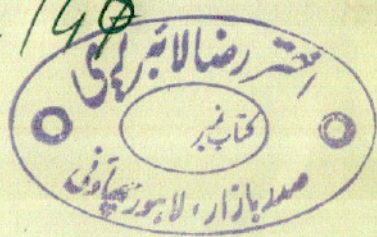 اختر رضا لائبریری
کتاب نمبر
صدر بازار، لاہور چھاؤنی